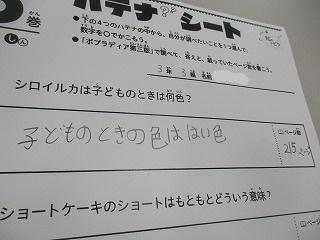 巻
ハテナ シート
●下の4つのハテナの中から、自分が調べたいことを1つ選んで、
数字を○でかこもう。
●「ポプラディア第三版」で調べて、答えと、載っていたページ数を書こう。
3年 3組 名前
シロイルカは子どものときは何色?
子どものときの色ははい色
ページ数
215ページ
ショートケーキのショートはもともとどういう意味?
ページ数